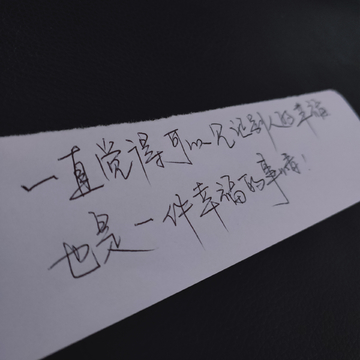 一直觉得可以见证别人的幸福
也是一件幸福的事情！